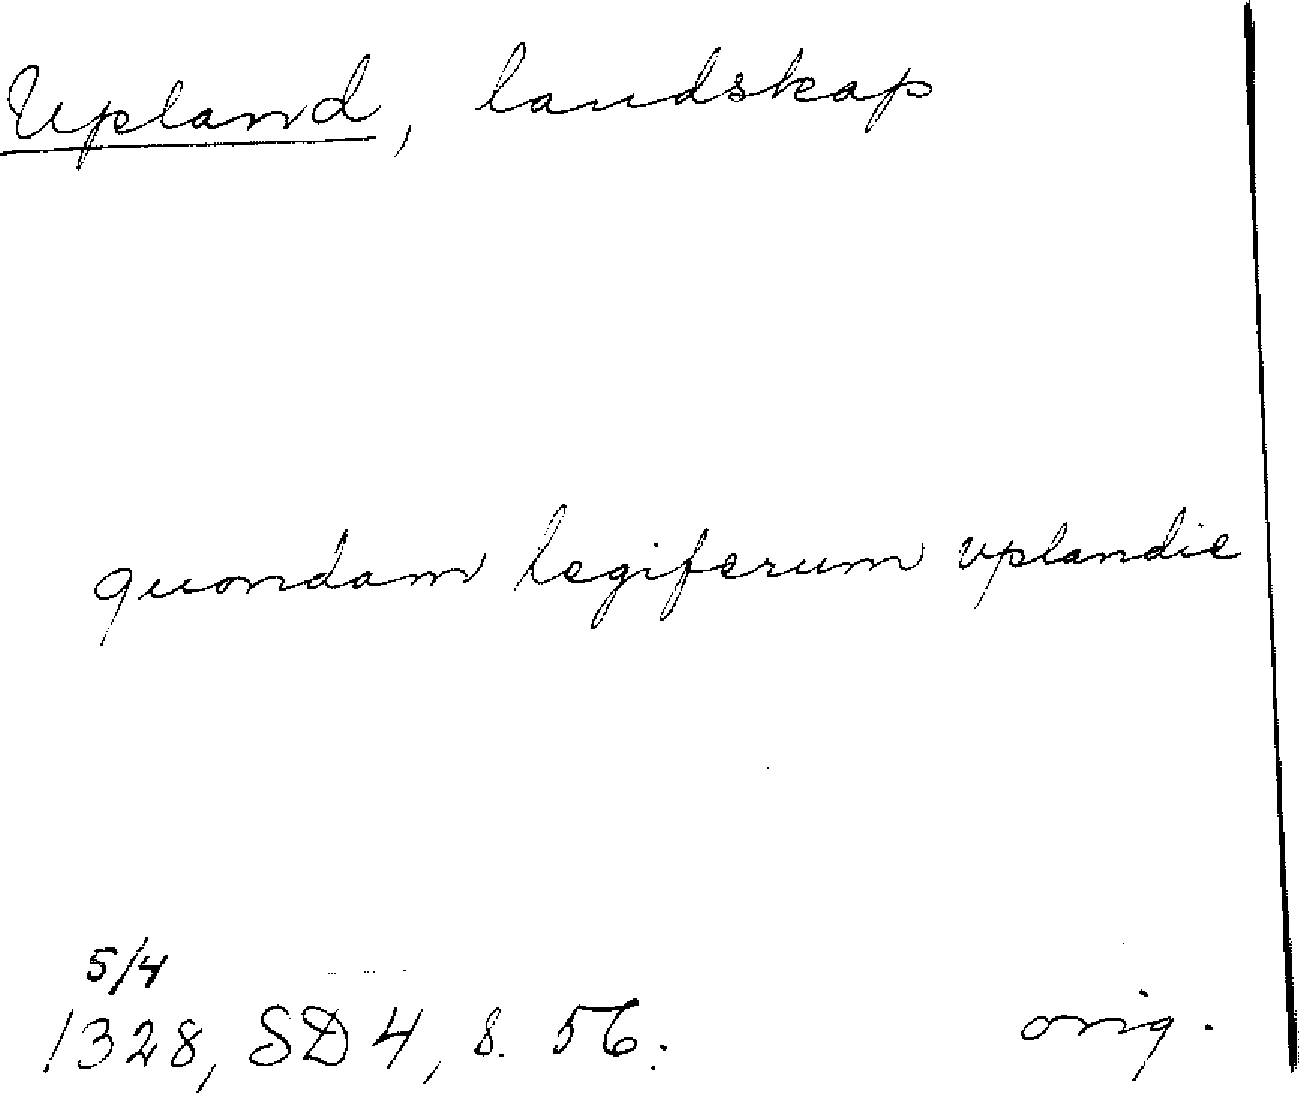 Upland, landskap
quondam legiferum vplandie
5/4
1328, SD 4, s. 56. orig.